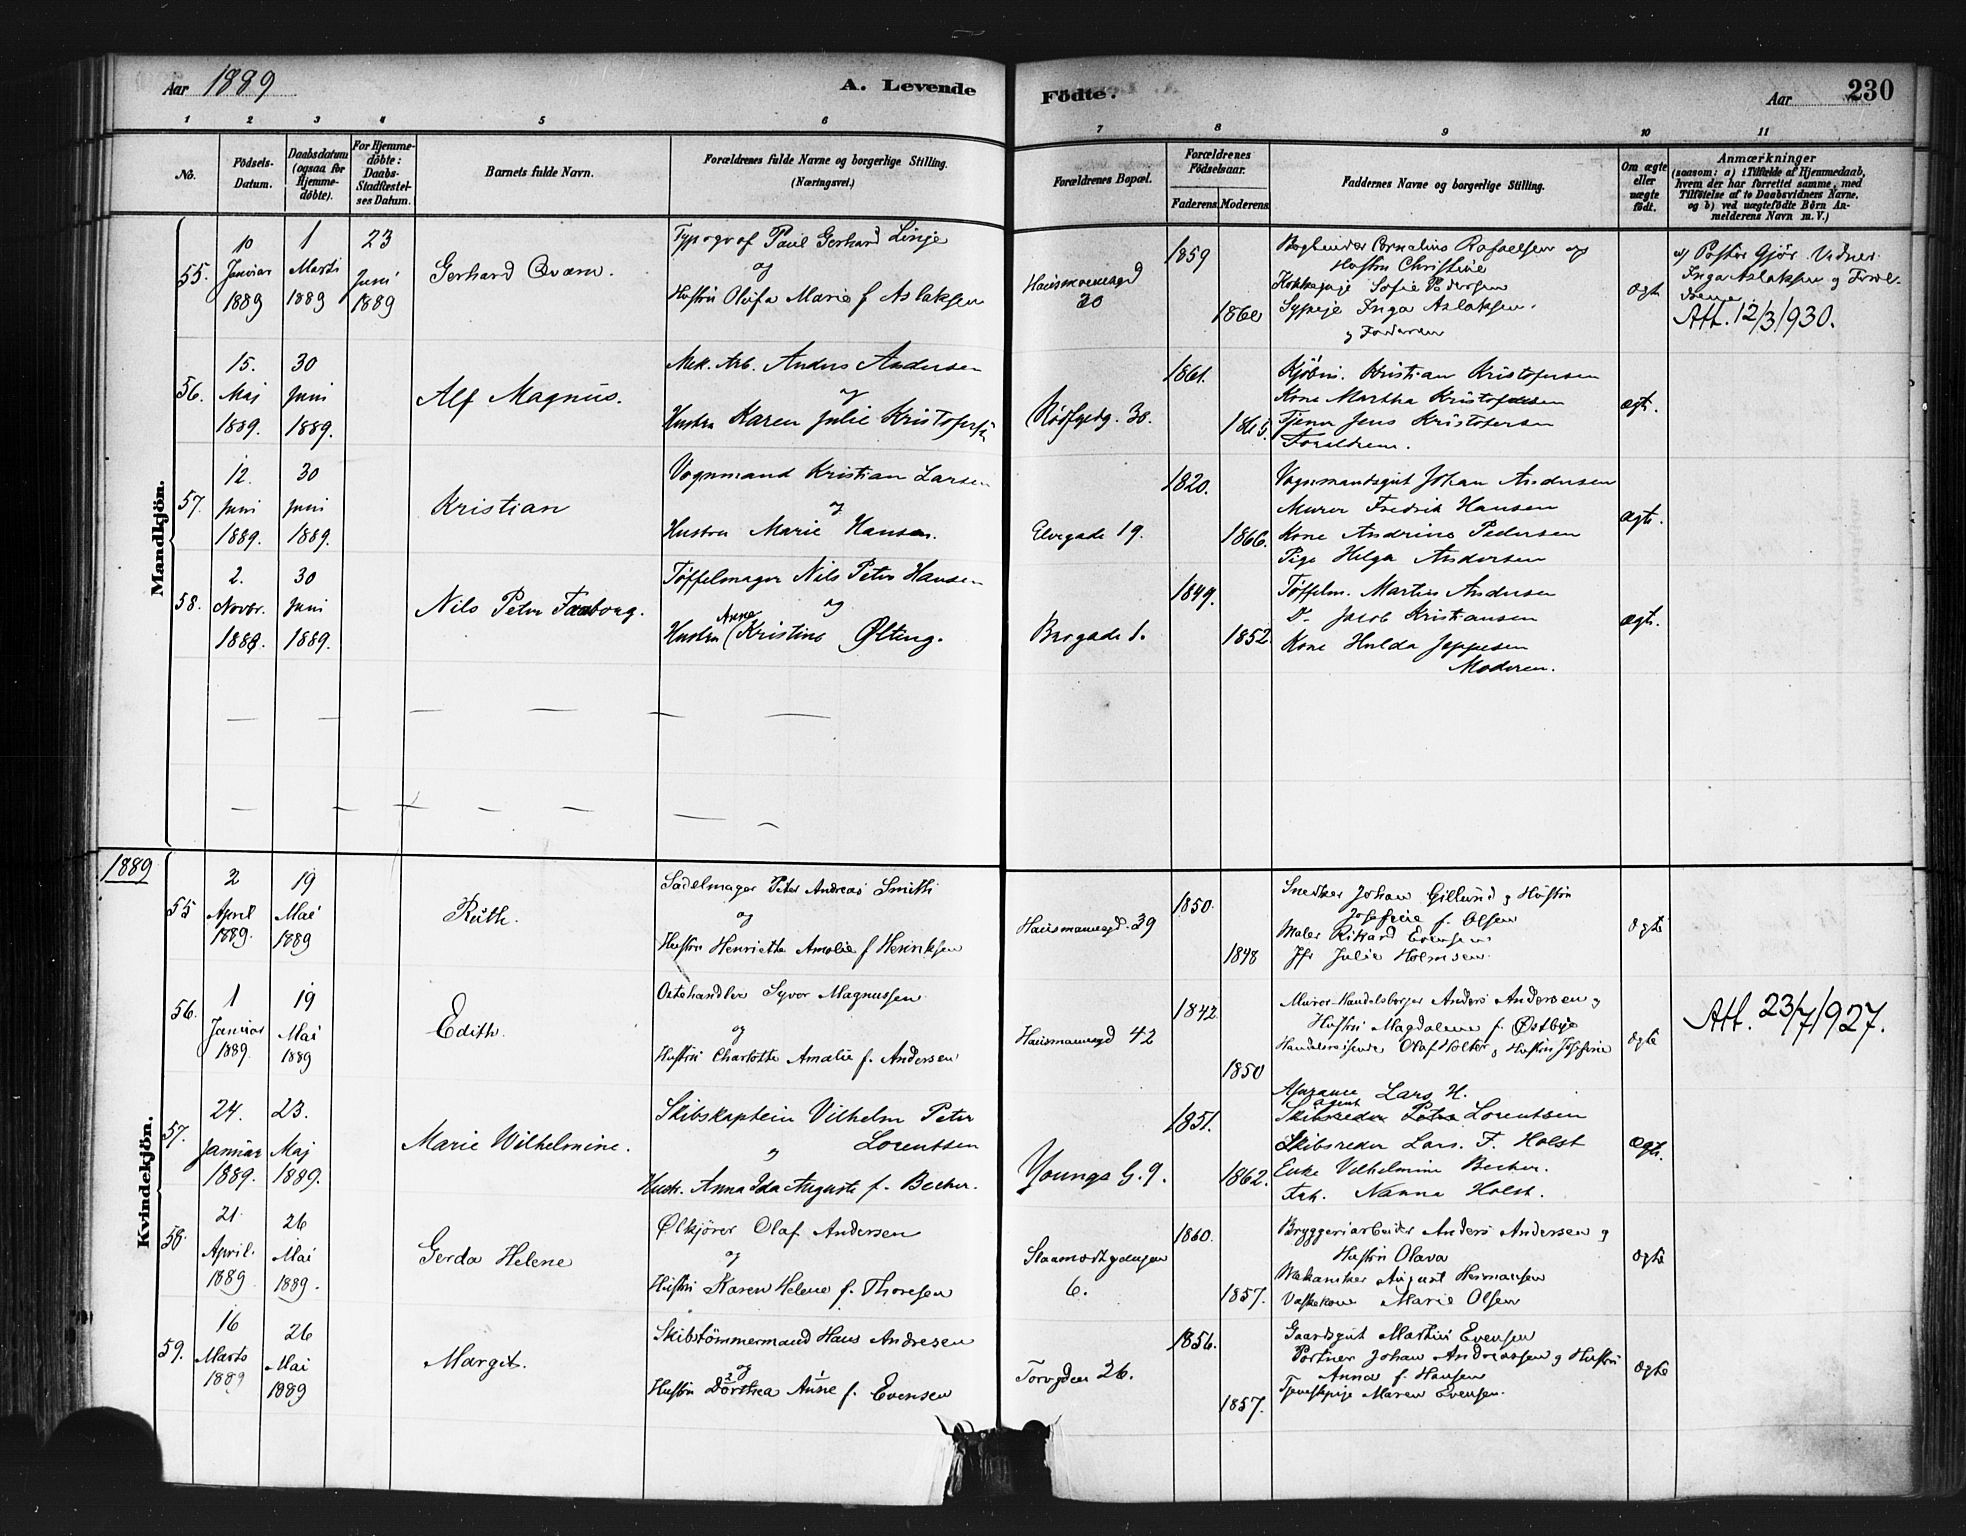 Aar 1889
A. Levende
Födte.
Aar
230
1 2 3 4 5 6 7 8 9 10 11
No.
Födsels-
Datum.
Daabsdatum
(ogsaa for
Hjemme-
döbte).
For Hjemme-
döbte:
Daabs-
Stadfæstel-
ses Datum.
Barnets fulde Navn.
Forældrenes fulde Navne og borgerlige Stilling.
(Næringsvei.)
Forældrenes Bopæl.
Forældrenes
Födselsaar.
Faderens.
Moderens.
Faddernes Navne og borgerlige Stilling.
Om ægte
eller
uægte
födt.
Anmærkninger
(saasom: a) i Tilfælde af Hjemmedaab,
hvem der har forrettet samme, med
Tilföielse af to Daabsvidners Navne,
og b) ved uægtefödte Börn An-
melderens Navn m. V.)
Mandkjön.
55.
10
Januar
1889
1
Marts
1889
23
Juni
1889
Gerhard Qvam.
Typograf Paul Gerhard Linje
og
Hustru Olufa Marie f Aslaksen
Hausmannsgd
20
1859
1860
Bogbinder Cornelius Rafaelsen og
Hustru Christine
Kokkepige Sofie Pedersen
Sypige Inga Aslaksen.
og Faderen
ægte
a) Pastor Gjør. Vidner
Inga Aslaksen og
Att. 12/3/930.
56.
15.
Maj
1889.
30
Juni
1889.
Alf Magnus.
Mek. Arb. Anders Andersen
og
Hustru Karen Julie Kristofersen
Rødfyldg. 30.
1861.
1865.
Kjøbm. Kristian Kristofersen
Kone Martha Kristofersen
Tjener Jens Kristofersen
Forældrene.
ægte.
57.
12.
Juni
1889.
30
Juni
1889.
Kristian
Vognmand Kristian Larsen
og
Hustru Marie Hansen.
Elvegade 19.
1820.
1866.
Vognmandsgut Johan Andersen
Murer Fredrik Hansen
Kone Andrine Pedersen
Pige Helga Andersen
ægte.
58.
2.
Novbr.
1888.
30
Juni
1889.
Nils Peter Faaborg.
Tøffelmager Nils Peter Hansen
og
Anne
Hustru (Kristine Ølting.
Brogade 1.
1849.
1852.
Tøffelm. Martin Andersen
D. Jacob Kristiansen
Kone Hulda Jeppesen
Moderen.
ægte.
1889
Kvindekjön.
55
2
April
1889.
19
Mai
1889
Ruth.
Sadelmager Peter Andreas Smith
og
Hustru Henriette Amalie f Henriksen
Hausmannsgd. 39
1850.
1848
Snedker Johan Gillund og Hustru
Josefine f. Olsen
Maler Rikard Evensen
Jfr Julie Holmsen.
ægte
56.
1
Januar
1889.
19
Mai
1889
Edith.
Ostehandler Syver Magnussen
og
Hustru Charlotte Amalie f. Andersen
Hausmannsgd 42
1842
1850
Murer-Handelsborger Anders Andersen og
Hustru Magdalene f. Østbye
Handelsreisende Olaf Holter og Hustru Josefine
ægte
Att. 23/7/927.
57.
24.
Januar
1889.
23.
Maj
1889.
Marie Wilhelmine.
Skibskaptein Vilhelm Peter
Lorentsen
og
Hustr. Anna Ida Auguste f. Becher.
Youngs G. 9.
1851.
1862.
Assurance Lars H.
agent
Skibsreder Peter Lorentsen
Skibsreder Lars. F. Holst
Enke Vilhelmine Becher.
Frk. Nanna Holst.
Ægte.
58.
21.
April.
1889
26
Mai
1889.
Gerda Helene
Ølkjører Olaf Andersen
og
Hustru Karen Helene f. Thoresen
6.
1860.
1857.
Bryggeriarbeider Anders Andersen og
Hustru Olava
Mekaniker August Hermansen
Vaskekone Marie Olsen
ægte
59.
16
Marts
1889
26
Mai
1889
Margit.
Skibstømmermand Hans Andresen
og
Hustru Dorthea Anne f. Evensen
Torvgden 26.
1856.
1857.
Gaardsgut Martin Evensen
Portner Johan Andreassen og Hustru
Anna f. Hansen
Tjenestpige Maren Evensen.
ægte